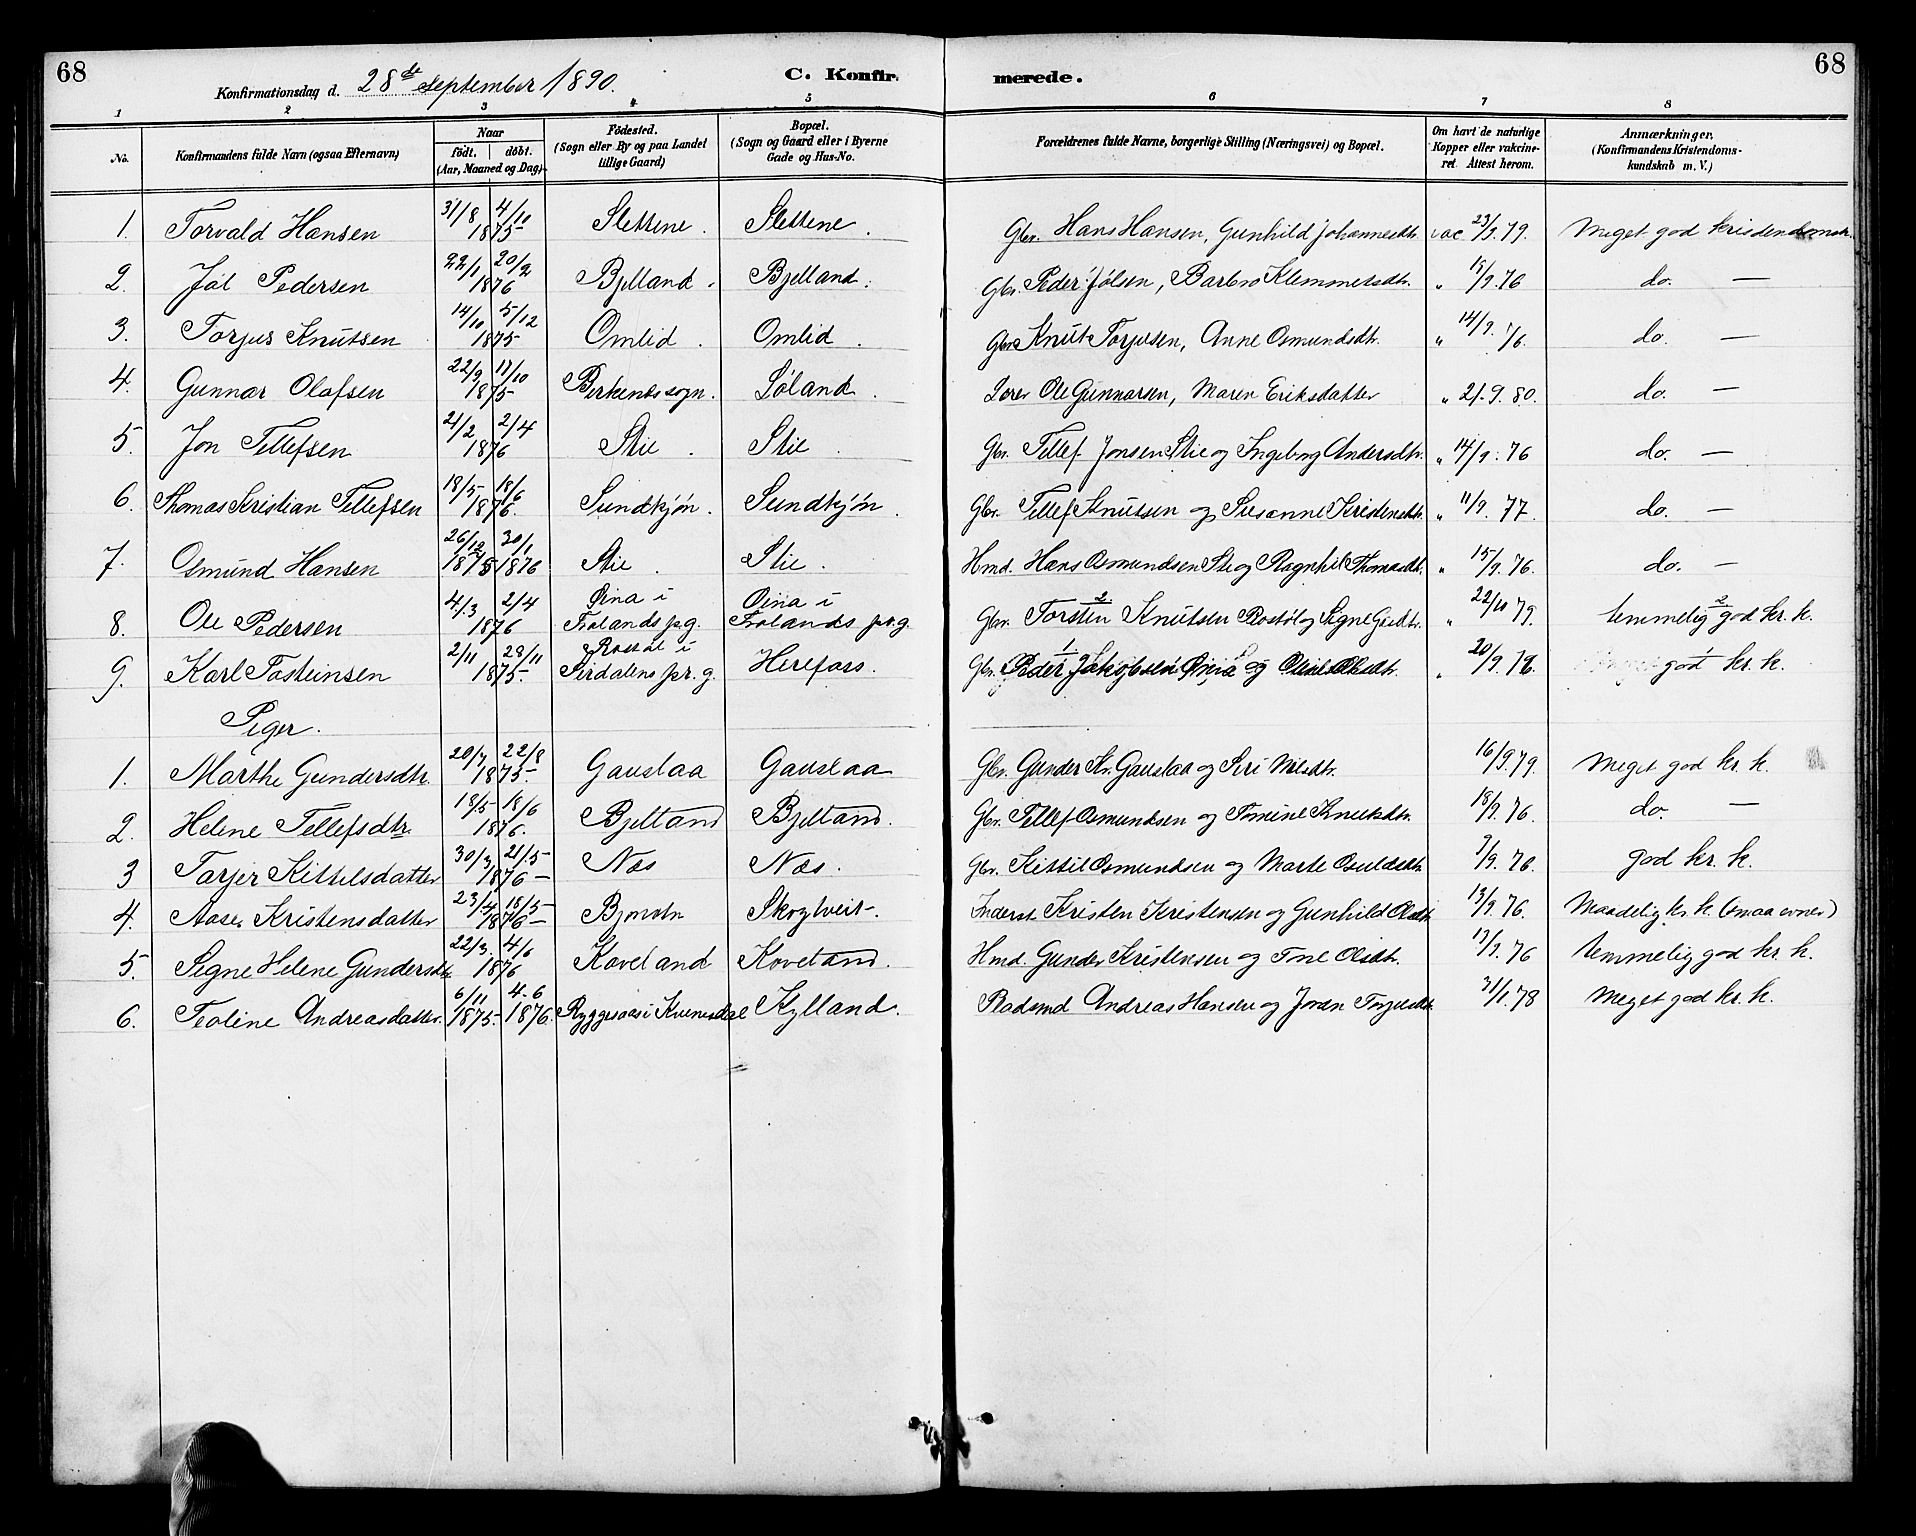 68
Konfirmationsdag d. 28de September 1890.
C. Konfirmerede.
68
1 2 3 4 5 6 7 8
No. Konfirmandens fulde Navn (ogsaa Efternavn) Naar födt. döbt. (Aar, Maaned og Dag) Födested. (Sogn eller By og paa Landet tillige Gaard) Bopæl. (Sogn og Gaard eller i Byerne Gade og Hus-No. Forældrenes fulde Navne, borgerlige Stilling (Næringsvei) og Bopæl. Om havt de naturlige Kopper eller vakcineret. Attest herom. Anmærkninger. (Konfirmandens Kristendomskundskab m. V.)
1. Torvald Hansen 31/8 4/10 1875 Slettene. Slettene. Gbr. Hans Hansen, Gunhild Johannesdtr. vac 23/9.79. Meget god kristendomsk.
2. Jøl Pedersen 22/1 20/2 1876 Bjelland. Bjelland. Gbr. Peder Jølsen, Barbro Klemmetsdtr. " 15/9.76 do. —
3. Torjus Knutsen 14/10 5/12 1875 Omlid. Omlid. Gbr Knut Torjusen, Anne Osmundsdtr. " 14/9. 76. do. —
4. Gunnar Olafsen 22/9 17/10 1875 Birkenes sogn. Søland. Lærer Ole Gunnarsen, Maren Eriksdatter " 21.9.80. do. —
5. Jon Tellefsen 21/2 2/4 1876 Stie. Stie. Gbr. Tellef Jonsen Stie og Ingeborg Andersdtr. " 14/9.76 do. —
6. Thomas Kristian Tellefsen 18/5 18/6 1876. Sundtjøn. Sundtjøn. Gbr. Tellef Knutsen og Susanne Kristensdtr. " 11/9.77. do. —
7. Osmund Hansen 26/12 1875 30/1 1876 Stie. Stie. Hmd. Hans Osmundsen Stie og Ragnhil Thomasdtr. " 15/9.76. do. —
8. Ole Pedersen 4/3 2/4 1876 Øina i Frolands p.g. Øina i Frolands pr.g. Gbr. 2 Torsten Knutsen Rostøl og Signe " 22/10 79. temmelig 2 god kr. k.
9. Karl Tosteinsen 2/11 28/11 1875. Rostøl i Sirdalens pr.g. Herefoss. Gbr. 1 Peder Jakobsen Øina og " 20/9.76. god kr. k.
Piger.
1. Marthe Gundersdtr. 20/7 22/8 1875. Gauslaa Gauslaa Gbr. Gunder Kr. Gauslaa og Siri Nilsdtr. 16/9.79. Meget god kr. k.
2. Helene Tellefsdtr. 18/5 18/6 1876. Bjelland Bjelland. Gbr. Tellef Osmundsen og Tomine Knutsdtr. 18/9.76. do. —
3 Torjer Kittelsdatter 30/3 21/5 1876 Næs Næs. Gbr. Kittil Osmundsen og Marte Osuldsdtr. 7/9.76. god kr. k.
4. Aase Kristensdatter 23/4 18/5 1876 Skogtveit. Inderst. Kristen Kristensen og Gunhild Olsdtr. 13/9.76. Maadelig kr. k. (smaa evner)
5. Signe Helene Gundersdtr 22/3. 4/6 1876 Koveland Koveland. Hmd. Gunder Kristensen og Tone Olsdtr. 13/9.76 temmelig god kr. k.
6. Teoline Andreasdatter. 6/11 1875. 4.6 1876. Ryggesaas i Kvinesdal Kylland. Pladsmd Andreas Hansen og Joran 78 Meget god kr. k.